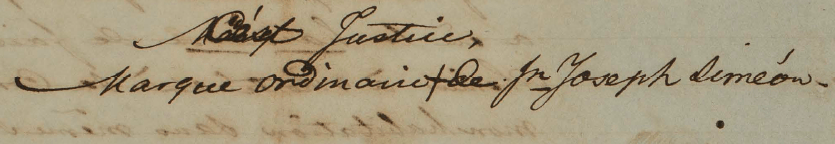 Justice,
Marque ordinaire + de Jn Joseph Siméon.